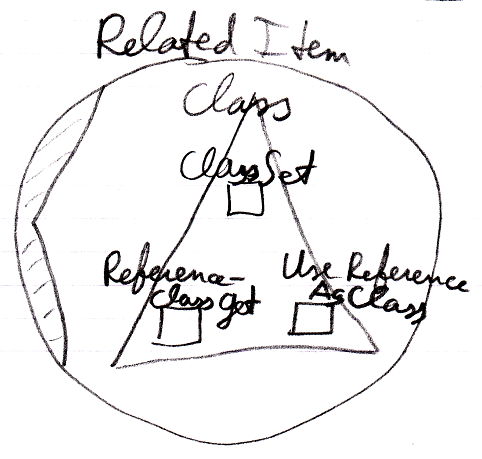 Related Item
Class
Class Set
Reference-
Class Get
Use Reference
As Class